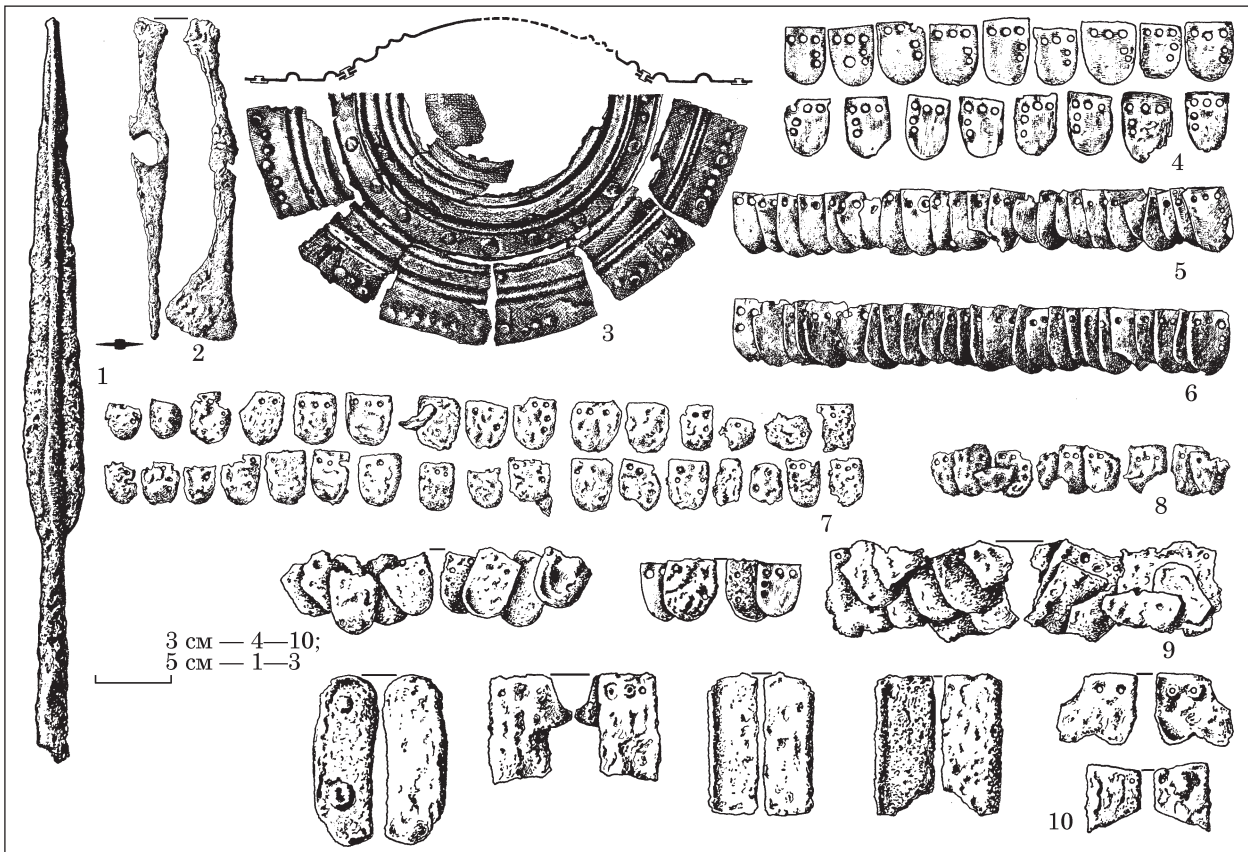 1
2
3
4
5
6
7
8
9
10
3 см — 4—10;
5 см — 1—3